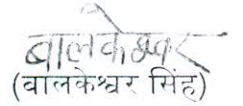 बालकेश्वर
(बालकेश्वर सिंह)